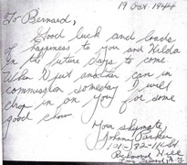 19 Oct 1944
To Bernard,
Good luck and loads
of happiness to you and Hilda
in the future days to come
When I just another can in
commission someday I will
drop in on you for some
good show
Your shipmate,
Johnny Parker